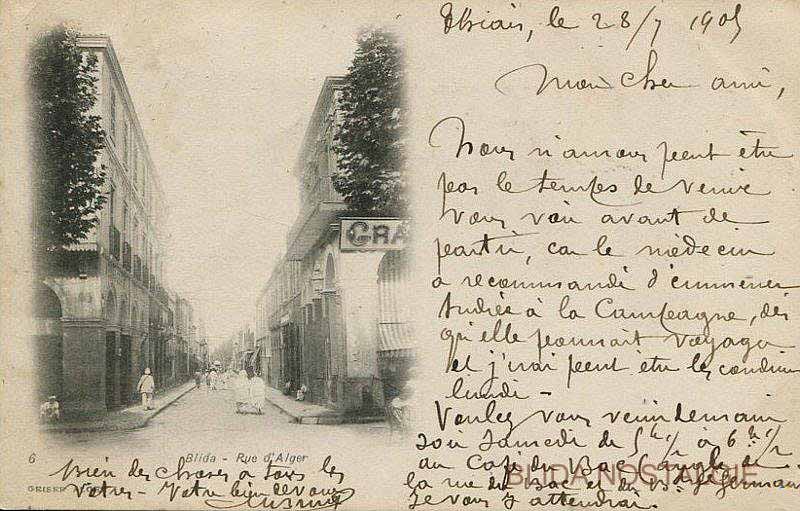 le 28/7 1905
Mon cher ami,
Nous n'aurons peut être
pas le temps de venir
vous voir avant de
partir, car le médecin
a recommandé d'emmener
à la Campagne, dès
qu'elle pourrait voyager
et j'irai peut être les conduire
lundi -
Voulez vous venir demain
soir Samedi de 5h 1/2 à 6h 1/2
au Café du Bac
la rue du Bac et du Bd St Germain
Je vous y attendrai.
GRA
6 Blida - Rue d'Alger
Bien des choses à tous les
vôtres - Votre bien dévoué
BLIDANOSTALGIE